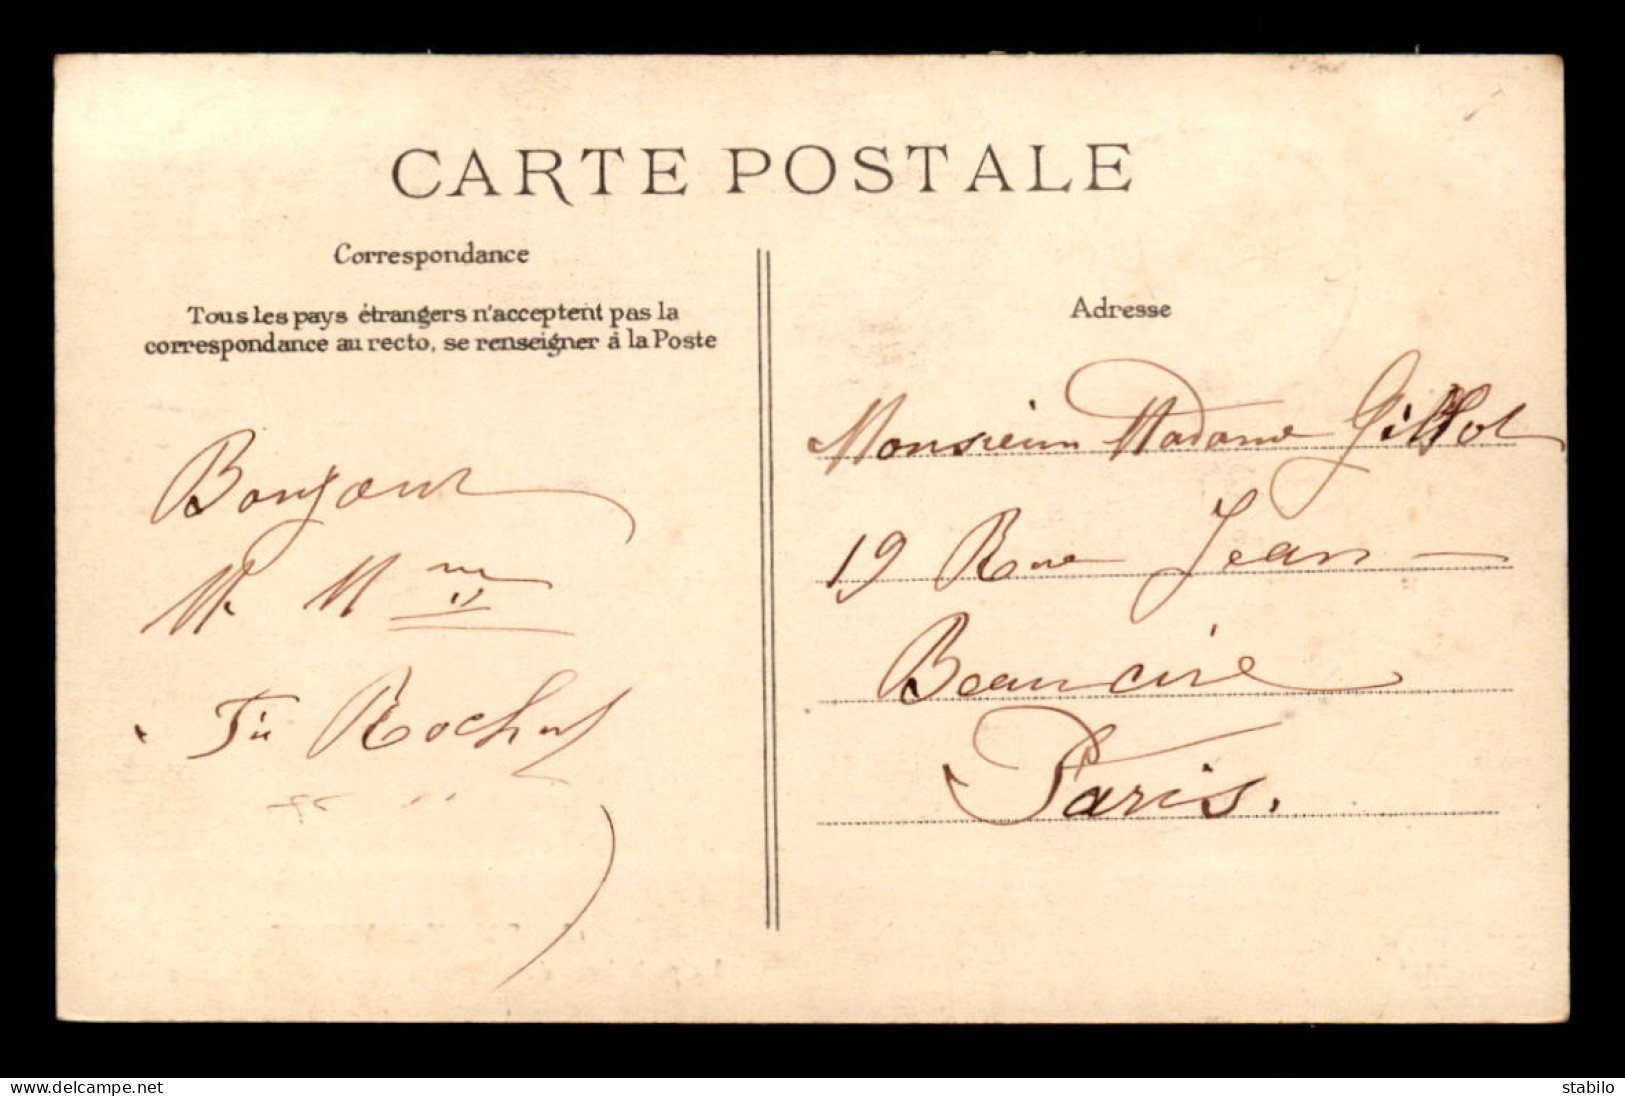 CARTE POSTALE
Correspondance
Tous les pays étrangers n'acceptent pas la
correspondance au recto, se renseigner à la Poste
Bonjour
M. Mme
Adresse
Monsieur Madame Gillot
19 Rue Jean
Beaucire
Paris.
www.delcampe.net
stabilo